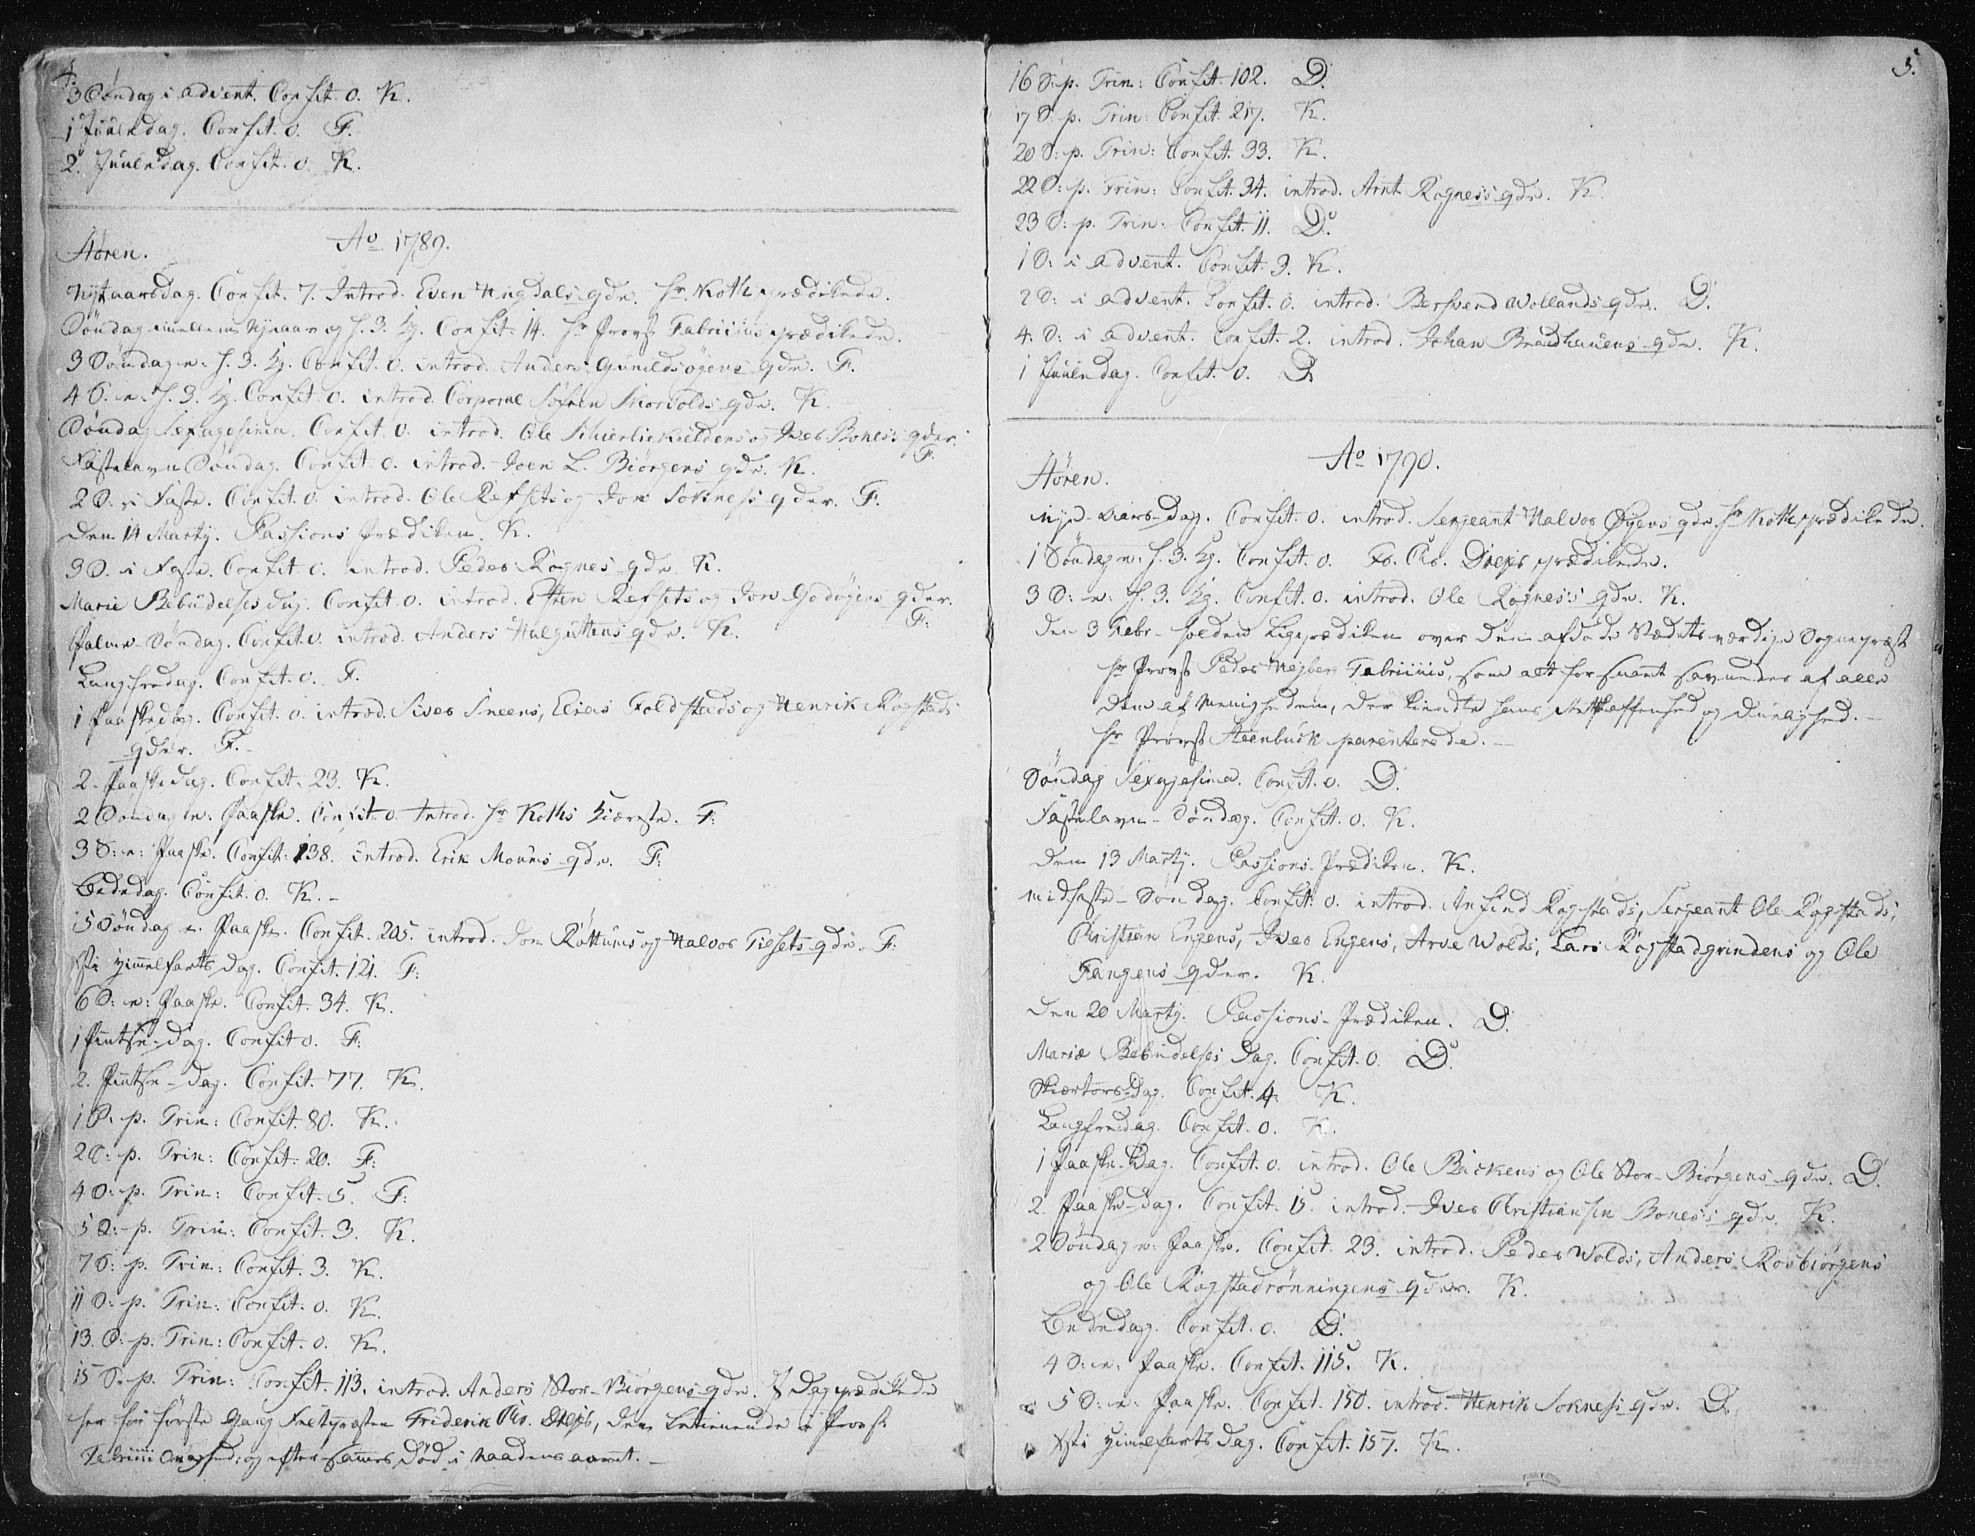 4.
3 Søndag i Advent. Confit. 0. K.
1 Juuledag. Confit. 0. F.
2. Juuledag. Confit. 0. K.
Ao 1789.
Hören.
Nytaarsdag. Confit. 7. Introd. Even Hugdals qde. Hr Koth prædikede.
Søndag imellem Nytaar og H. 3. Kg. Confit. 14. Hr Provst Fabricius prædikede.
3 Søndag e. H. 3. Kg. Confit. 0. introd. Anders Gunildsøyens qde. F.
4 S. e. H. 3. Kg. Confit. 0. introd. Corporal Søfren Skorvolds qde. K.
Søndag Sexagesima. Confit. 0. introd. Ole Schierliekieldens og Iver Boness qder. F.
Fastelavn Søndag. Confit. 0. introd. Joen L. Biørgens qde. K.
2 S. i Faste. Confit. 0. introd. Ole Refsets og Jon Sokness qder. F.
Den 14 Martij. Passions Prædiken. K.
3 S. i Faste. Confit 0. introd. Peder Rognes qde. K.
Mariæ Bebudelses dag. Confit. 0. introd. Esten Refsets og Jon Godøyens qder. F.
Palme-Søndag. Confit. 0. introd. Anders Halguttens qde. K.
Langfredag. Confit. 0. F.
1 Paaskedag. Confit. 0. introd. Siver Sneens, Elias Foldstads og Henrik Rogstads
qder. F.
2. Paaskedag. Confit. 23. K.
2 Søndag e: Paaske. Confit. 0. Introd. Hr Koths Kiæreste. F.
3 S: e: Paaske. Confit: 138. introd. Erik Mouns qde. F.
Bededag. Confit. 0. K.
5 Søndag e. Paaske. Confit. 205. introd. Jon Røttums og Halvor Tilsets qde. F.
Xsti Himmelfarts Dag. Confit. 121. F.
6 S: e: Paaske. Confit. 34. K.
1 Pintse-dag. Confit 0. F.
2. Pintse-dag. Confit. 77. K.
1 S: p. Trin: Confit. 80. K.
2 S: p. Trin: Confit: 20. F.
4 S: p. Trin: Confit. 5. F.
5 S: p. Trin: Confit. 3. K.
7 S: p. Trin: Confit. 3. K.
11 S: p. Trin: Confit. 0. K.
13. S: p. Trin: Confit. 0. K.
15 S: p. Trin: Confit. 113. introd. Anders Stor-Biørgens qde. I Dag prædikede
her for første Gang Feltpræsten Friderik Chr. Dreyer, den betienende i Provst
Fabricii og efter sammes Død i Naadens aaret.
5.
16 S: p. Trin: Confit. 102. D.
17 S: p. Trin: Confit. 217. K.
20 S: p. Trin: Confit. 33. K.
22 S: p. Trin: Confit. 34. introd. Arnt Rogness qde. K.
23 S: p. Trin: Confit. 11. D.
1 S: i Advent. Confit. 3. K.
2 S: i Advent. Confit. 0. introd. Bersvend Wollands qde. D.
4. S: i Advent. Confit. 2. introd. Johan Brandhauens qde. K.
1 Juuledag. Confit. 0. D.
Ao 1790.
Hören.
Nyt-Aars-dag. Confit. 0. introd. Sergeant Halvor Øyens qde. Hr Koth prædikede.
1 Søndag e. H. 3. Kg. Confit. 0. Fr. Chr. Dreyer prædikede.
3 S: e. H. 3. Kg. Confit. 0. introd. Ole Rogness qde. K.
Den 3 Febr. holden Ligprædiken over den afdøde Stædets værdige Sognepræst
Hr Provst Peder Hejberg Fabricius, som alt for snart savnedes af alle
dem af Menigheden, der kiendte hans Retskaffenhed og Duelighed.
Hr Provst Steenbuck parenterede.
Søndag Sexagesima. Confit. 0. D.
Fastelavn-Søndag. Confit. 0. K.
Den 13 Martij. Passions-Prædiken. K.
Midfaste-Søndag. Confit. 0. introd. Anfind Rogstads, Sergeant Ole Rogstads,
Christen Engens, Iver Engens, Arve Wolds, Lars Rogstadgrindens og Ole
Fangens qder. K.
Den 20 Martij. Passions-Prædiken. D.
Mariæ Bebudelses Dag. Confit. 0. D.
Skiertors-Dag. Confit. 4. K.
Langfredag. Confit. 0. K.
1 Paaske-Dag. Confit. 0. introd. Ole Backens og Ole Stor-Biørgens qde. D.
2. Paaske-dag. Confit. 15. introd. Iver Christiansen Boness qde. K.
2 Søndag e: Paaske. Confit. 23. introd. Peder Wolds, Anders Rosbiørgens
og Ole Rogstadrønningens qder. K.
Bededag. Confit. 0. D.
4 S: e: Paaske. Confit. 115. K.
5 S: e: Paaske. Confit. 150. introd. Henrik Sokness qde. D.
Xsti Himmelfarts Dag. Confit. 157. K.